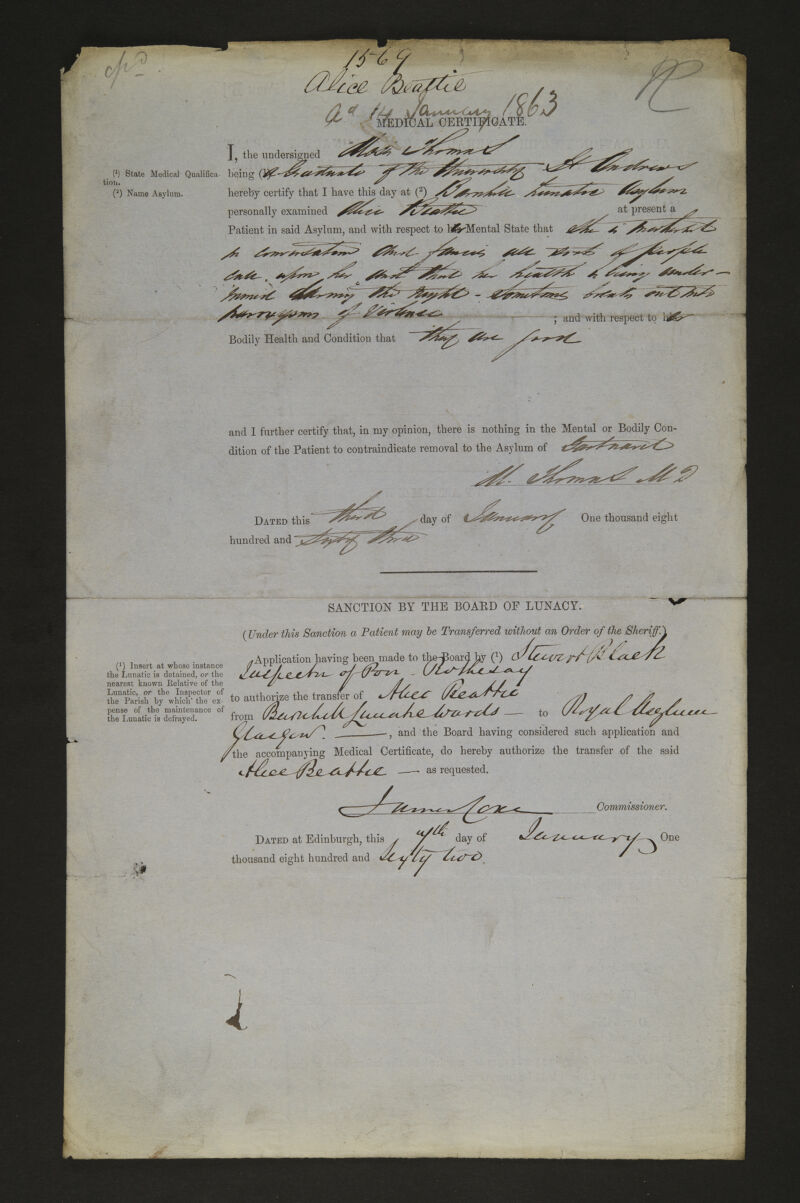 1569
Alice Beattie
Ad 14 January 1863
MEDICAL CERTIFICATE.
I, the undersigned Thomas
(1) State Medical Qualification.
being (1) A Graduate of the University St Andrews
(2) Name Asylum.
hereby certify that I have this day at (2) Barnhill Lunatic Asylum
personally examined Alice Beattie at present a
Patient in said Asylum, and with respect to her Mental State that she is incoherent
in conversation and fancies all sorts of people
call upon her and that her health is being under-
mined during the night - sometimes breaks out into
paroxysms of violence ; and with respect to her
Bodily Health and Condition that they are good
and I further certify that, in my opinion, there is nothing in the Mental or Bodily Con-
dition of the Patient to contraindicate removal to the Asylum of Gartnavel
M. Thomas M D
DATED this third day of January One thousand eight
hundred and sixty three
SANCTION BY THE BOARD OF LUNACY.
(Under this Sanction a Patient may be Transferred without an Order of the Sheriff.)
(1) Insert at whose instance
the Lunatic is detained, or the
nearest known Relative of the
Lunatic, or the Inspector of
the Parish by which the ex-
pense of the maintenance of
the Lunatic is defrayed.
Application having been made to the Board by (1) Stewart Black
Inspector of Poor - Rothesay
to authorize the transfer of Alice Beattie
from Barnhill Lunatic Wards — to Royal Asylum
Glasgow. —, and the Board having considered such application and
the accompanying Medical Certificate, do hereby authorize the transfer of the said
Alice Beattie — as requested.
James Coxe Commissioner.
DATED at Edinburgh, this day of January One
thousand eight hundred and Sixty two.